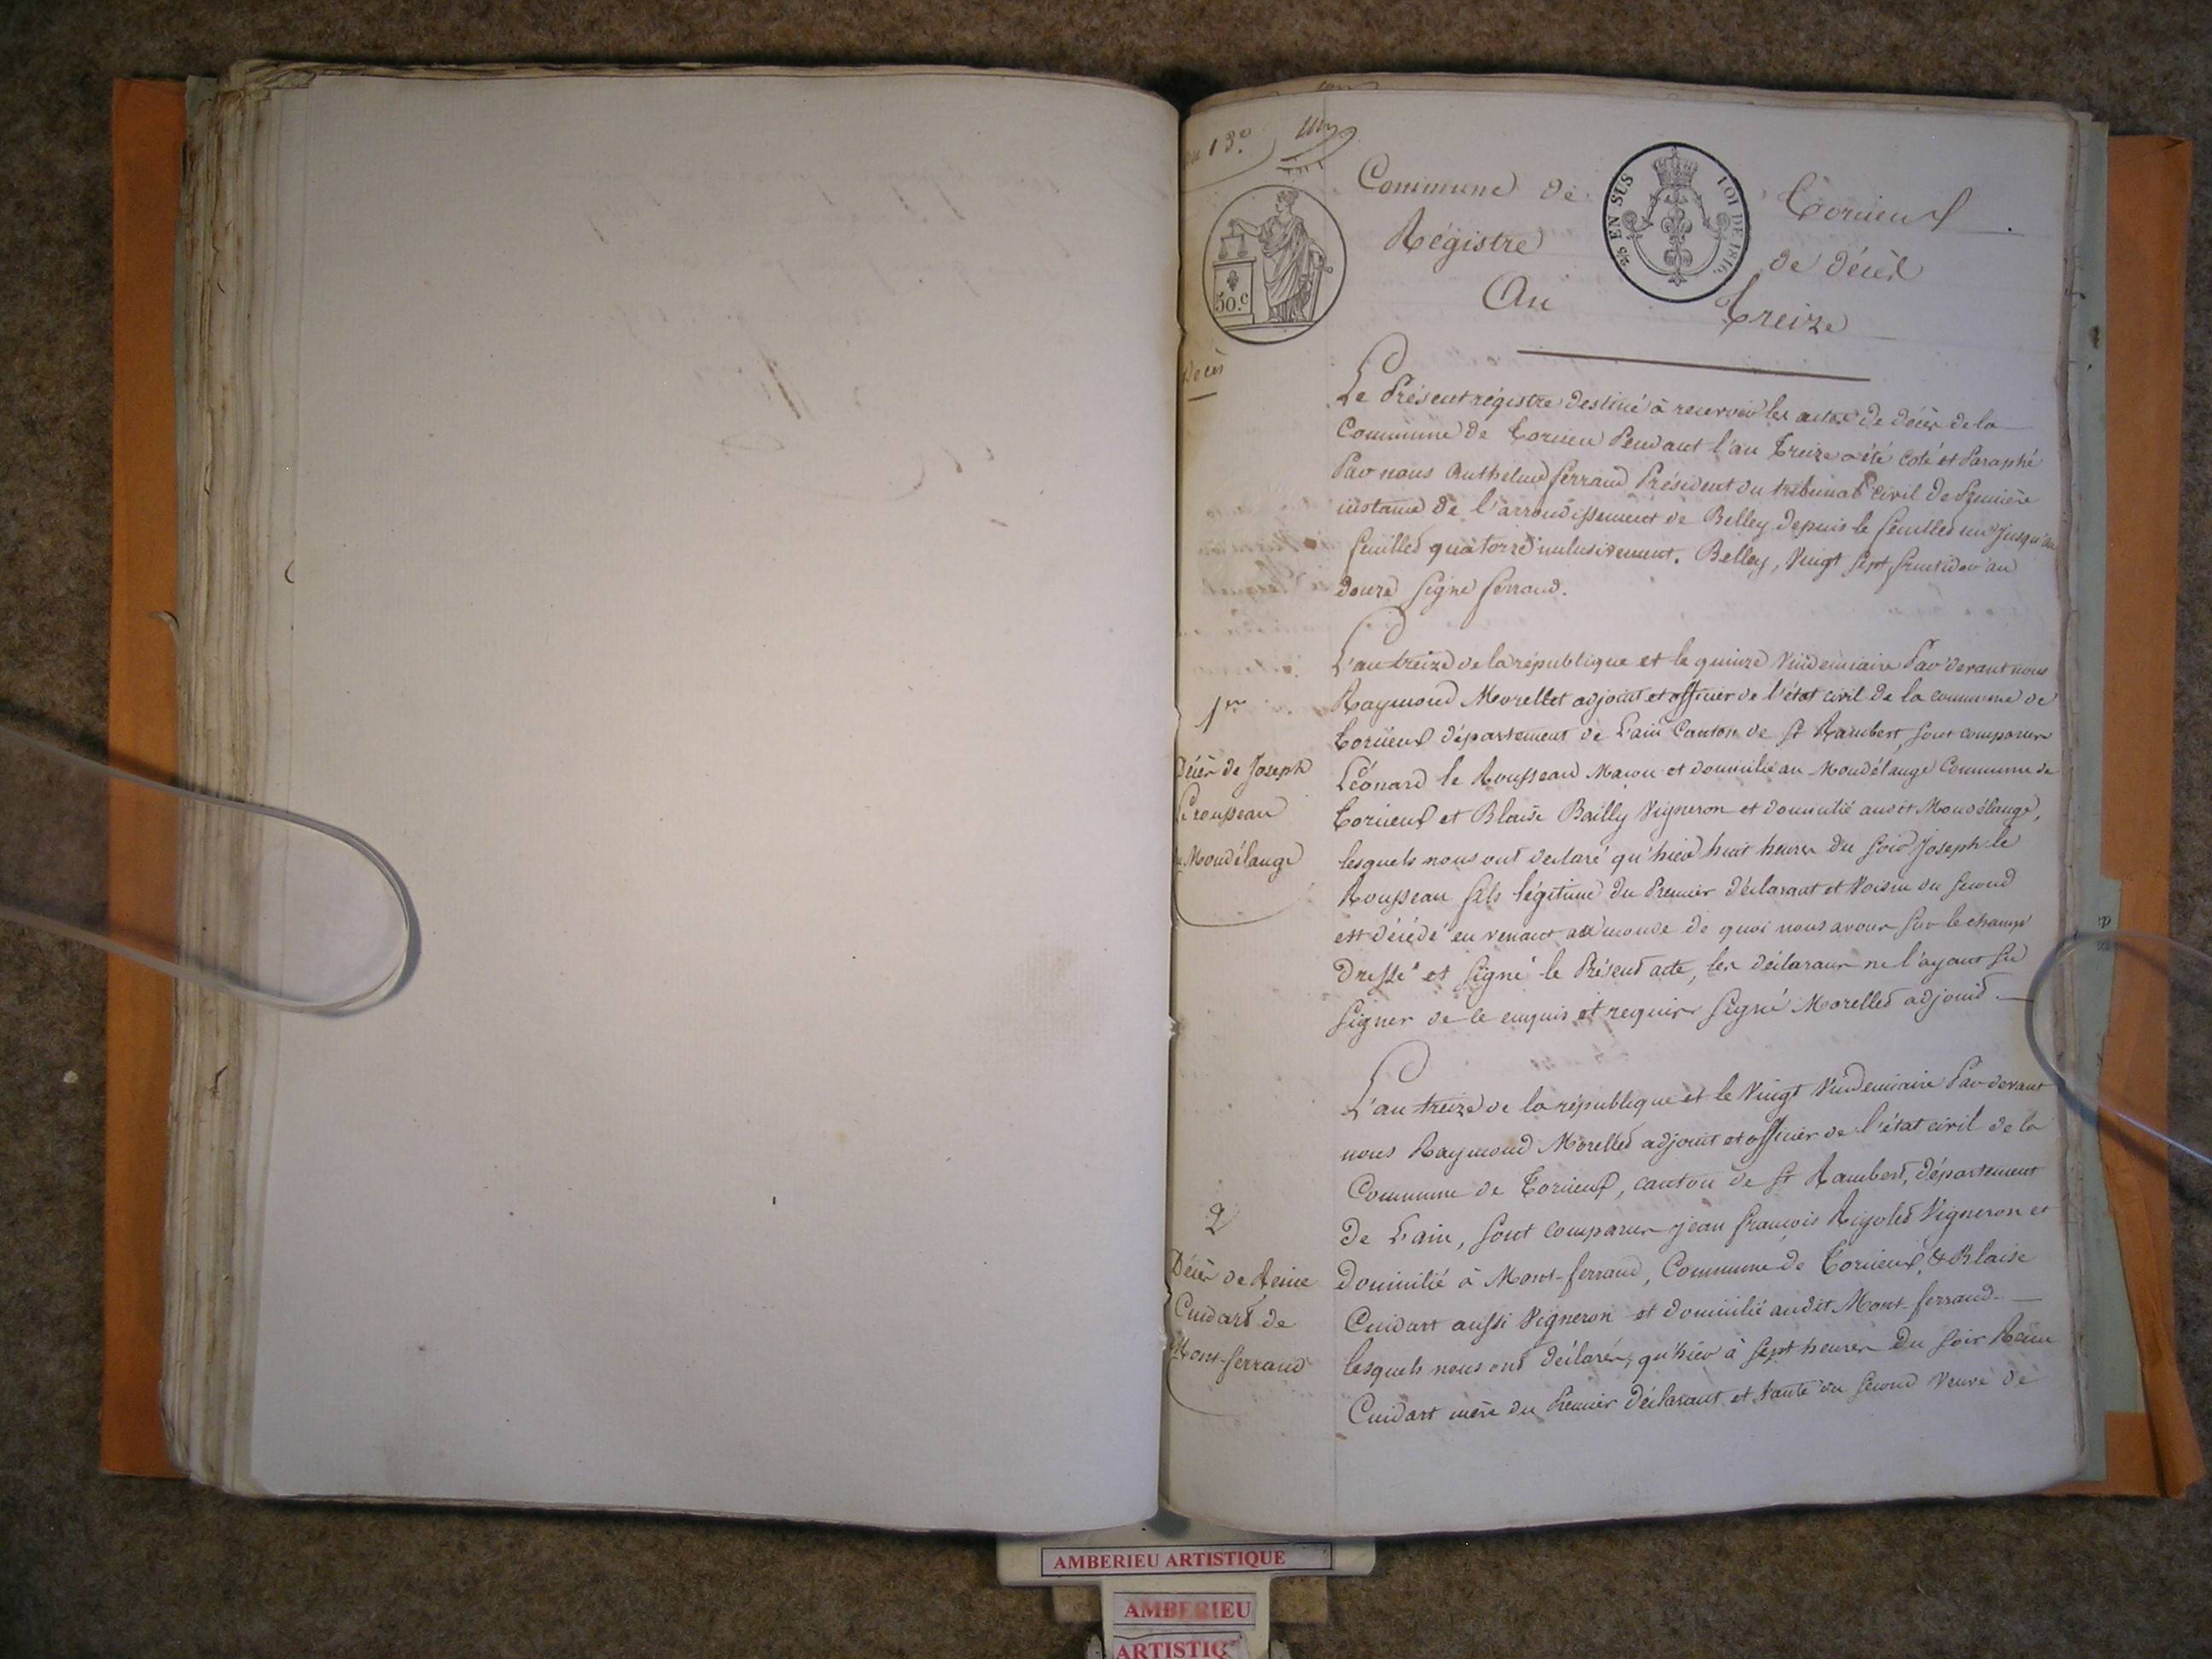 an 13e
un
50.c
2/5 EN SUS
LOI DE 1816.
Commune de Torcieux
Régistre de décès
An Treize
Décès
Le Présent régistre destiné à recevoir les actes de décès de la
Commune de Torcieu Pendant l'an Treize a été coté et Paraphé
Par nous Anthelme ferrand Président du tribunal civil de Première
instance de l'arrondissement de Belley depuis le feuillet un jusqu'au
feuillet quatorze inclusivement. Belley, Vingt sept fructidor an
douze signé ferrand.
1er
Décès de Joseph
Lerousseau
de Mondélange
L'an treize de la république et le quinze Vindemiaire Par devant nous
Raymond Morellet adjoint et officier de l'état civil de la commune de
Torcieux département de L'ain Canton de St Rambert, sont comparus
Léonard le Rousseau Maçon et domicilié au Mondélange Commune de
Torcieux et Blaise Bailly Vigneron et domicilié audit Mondélange,
lesquels nous ont declaré qu'hier huit heures du soir Joseph le
Rousseau fils légitime du Premier déclarant et Voisin du second
est décédé en venant au monde de quoi nous avons sur le champ
dressé et signé le Présent acte, les déclarans ne l'ayant su
signer de ce enquis et requis signé Morellet adjoint.
2
Décès de Reine
Cuidart de
Mont-ferrand
L'an treize de la république et le Vingt Vindemiaire Par devant
nous Raymond Morellet adjoint et officier de l'état civil de la
Commune de Torcieux, canton de St Rambert, département
de L'ain, sont comparus jean françois Rigolet Vigneron et
domicilié à Mont-ferrand, Commune de Torcieux, & Blaise
Cuidart aussi Vigneron et domicilié audit Mont-ferrand
lesquels nous ont déclarés, qu'hier à sept heures du soir Reine
Cuidart mère du Premier déclarant et tante du second veuve de
AMBERIEU ARTISTIQUE
AMBERIEU
ARTISTIQ